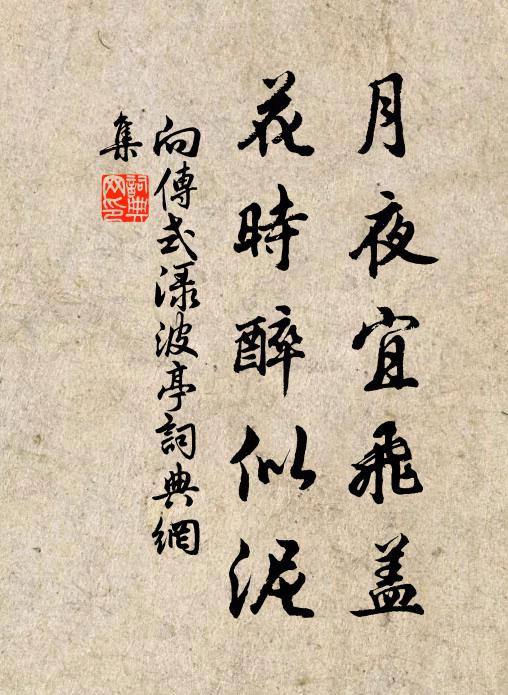 月夜宜飛盖
花時醉似泥
向傳式淥波亭詞典網
集
詞典网印